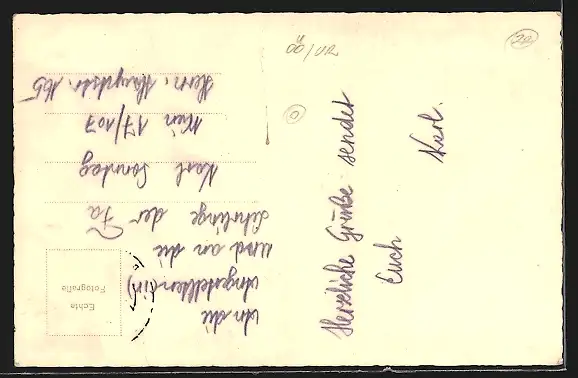 An die
Angestellten(in)
und an die
Lehrlinge der Fa
Karl Sonntag
Wien 17/107
Hern. Hauptstr. 165
Echte
Fotografie
Herzliche Grüße sendet
Euch
Karl.
OÖ/UR